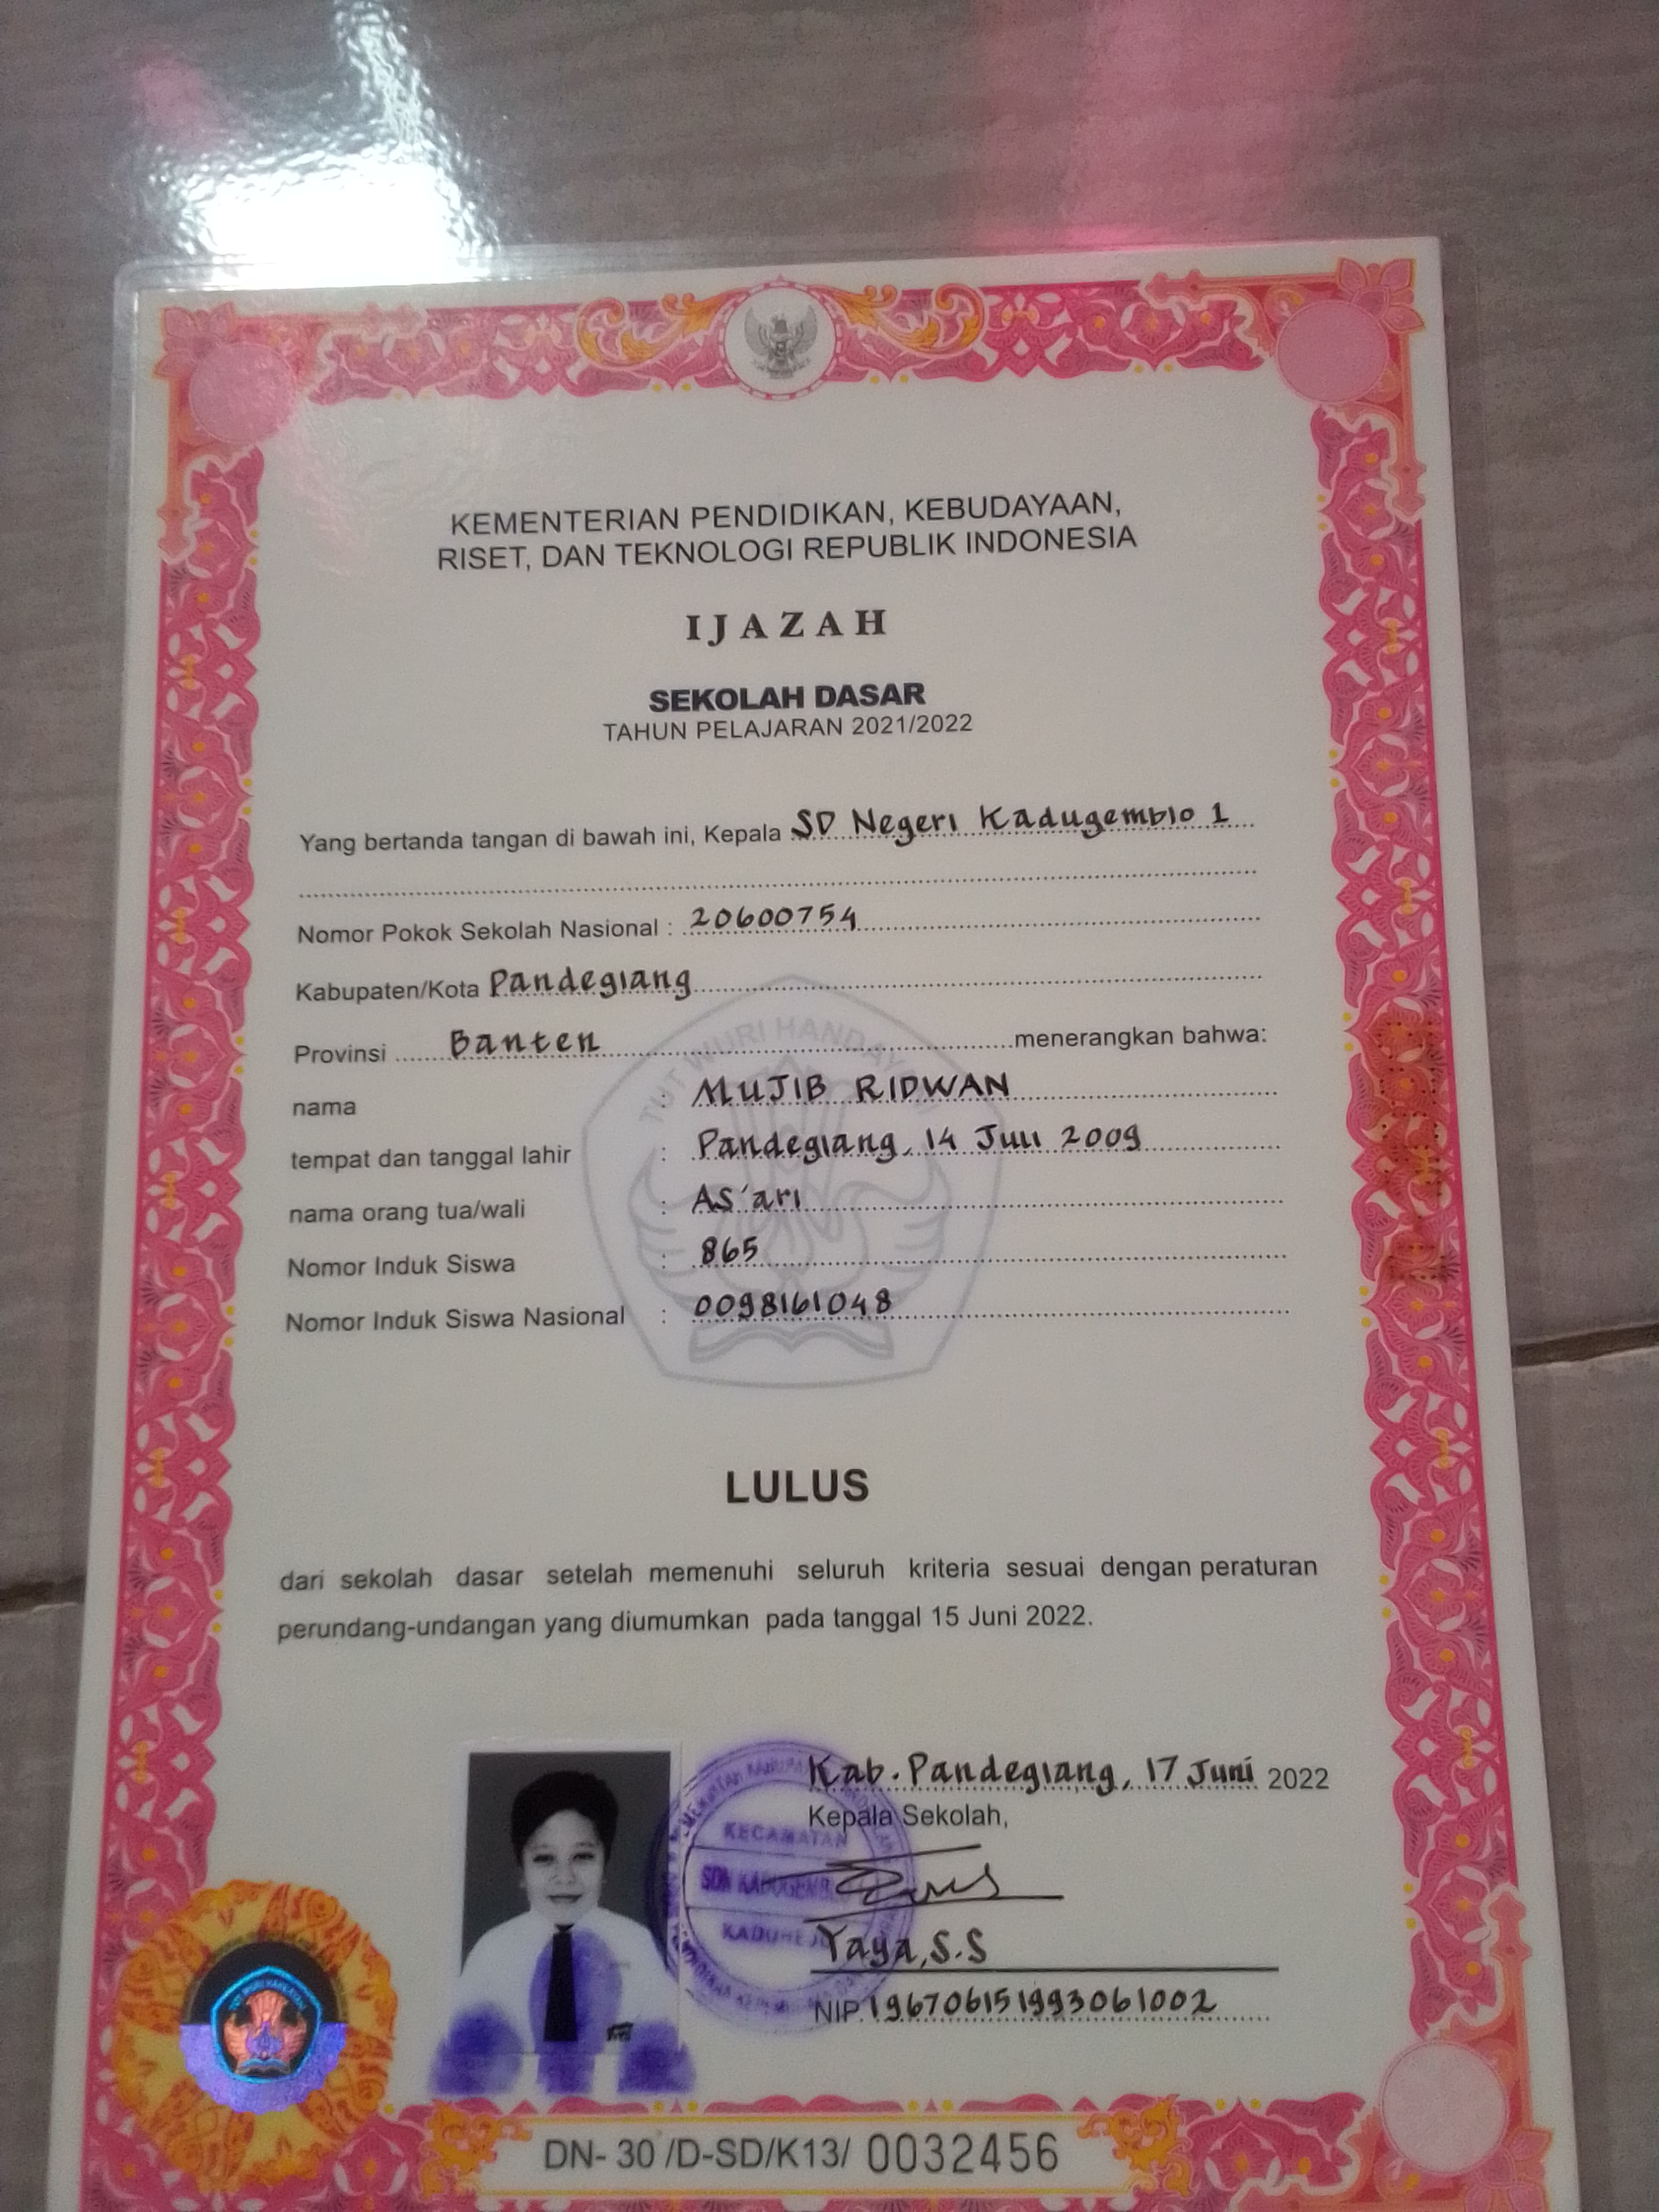 KEMENTERIAN PENDIDIKAN, KEBUDAYAAN,
RISET, DAN TEKNOLOGI REPUBLIK INDONESIA
IJAZAH
SEKOLAH DASAR
TAHUN PELAJARAN 2021/2022
Yang bertanda tangan di bawah ini, Kepala SD Negeri Kadugemblo 1
Nomor Pokok Sekolah Nasional : 20600754
Kabupaten/Kota Pandeglang
Provinsi Banten menerangkan bahwa:
nama : MUJIB RIDWAN
tempat dan tanggal lahir : Pandeglang, 14 Juli 2009
nama orang tua/wali : As'ari
Nomor Induk Siswa : 865
Nomor Induk Siswa Nasional : 0098161048
TUT WURI HANDAYANI
LULUS
dari sekolah dasar setelah memenuhi seluruh kriteria sesuai dengan peraturan
perundang-undangan yang diumumkan pada tanggal 15 Juni 2022.
Kab. Pandeglang, 17 Juni 2022
Kepala Sekolah,
KECAMATAN
SDN KADUGEMB
KADUHEJO
Yaya, S.S
NIP. 196706151993061002
TUT WURI HANDAYANI
DN- 30 /D-SD/K13/ 0032456